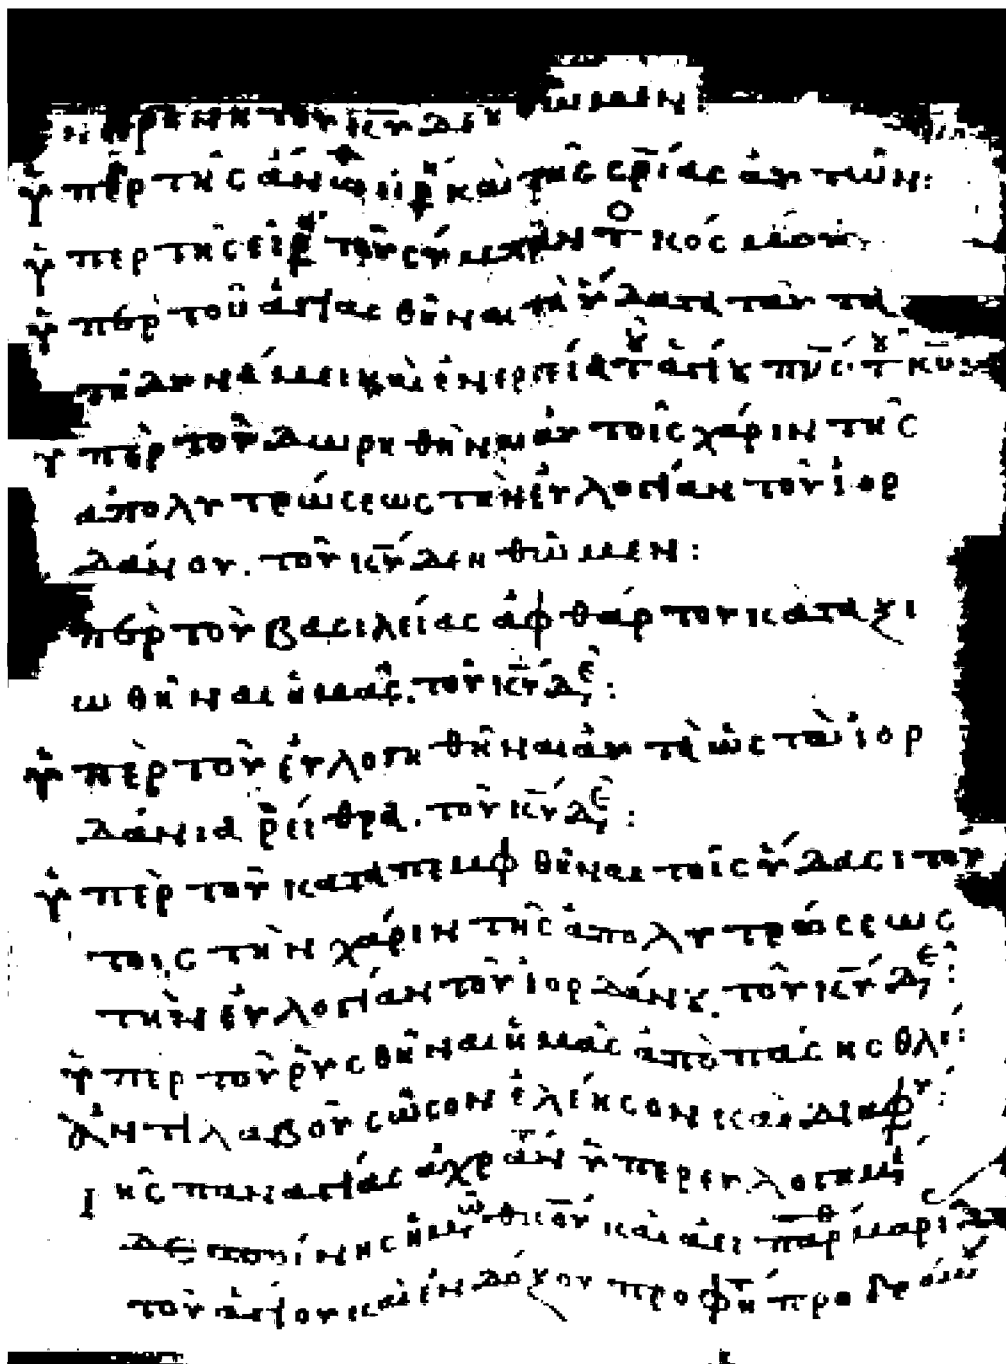 ἐν εἰρήνη τοῦ κ̅υ̅ δεηθῶμεν:
ὑπὲρ τῆς ἄνωθεν εἰρή καὶ τῆς σρίας αὐτῶν:
ὑπὲρ τῆς εἰρ τοῦ σύμπαντο κόσμου
ὑπὲρ τοῦ ἁγιασθῆναι τὰ ὕδατα ταῦτα
τῆ δυνάμει καὶ ἐνεργεία τοῦ ἁγίου π̅ν̅ς. τοῦ κ̅υ̅
ὑπὲρ τοῦ δωρηθῆναι αὐτοῖς χάριν τῆς
ἀπολυτρώσεως τὴν εὐλογίαν τοῦ ἰορ
δάνου. τοῦ κ̅υ̅ δεηθῶμεν:
πὲρ τοῦ βασιλείας ἀφθάρτου καταξι
ωθῆναι ἡμᾶς. τοῦ κ̅υ̅ δε:
ὑπὲρ τοῦ εὐλογηθῆναι αὐτὰ ὡς τὰ ἰορ
δάνια ῥείθρα. τοῦ κ̅υ̅ δε:
ὑπὲρ τοῦ καταπεμφθῆναι τοῖς ὕδασι τού
τοις τὴν χάριν τῆς ἀπολυτρώσεως
τὴν εὐλογίαν τοῦ ἰορδάνου. τοῦ κ̅υ̅ δε:
ὑπὲρ τοῦ ῥυσθῆναι ἡμᾶς ἀπὸ πάσης θλί:
Ἀντιλαβοῦ σῶσον ἐλέησον καὶ διαφυ:
Τῆς παναγίας ἀχράντ ὑπερευλογημ
δεσποίνης ἡμῶ θ̅κ̅ου καὶ ἀεὶ παρθ μαρίας
τοῦ ἁγίου καὶ ἐνδόξου προφή προδρόμου